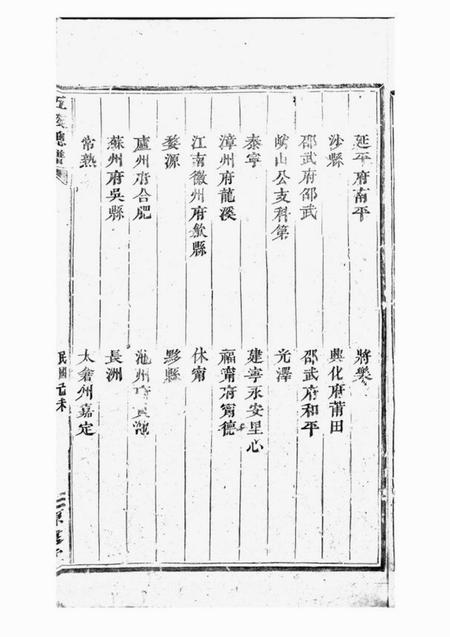 延平府南平　將樂
沙縣　興化府莆田
邵武府邵武　邵武府和平
山公支科第　光澤
泰寧　建寧永安里心
漳州府龍溪　福甯府甯德
江南徽州府歙縣　休甯
婺源　黟縣
廬州府合肥　池州
蘇州府吳縣　長洲
常熟　太倉州嘉定
總譜　民國己未